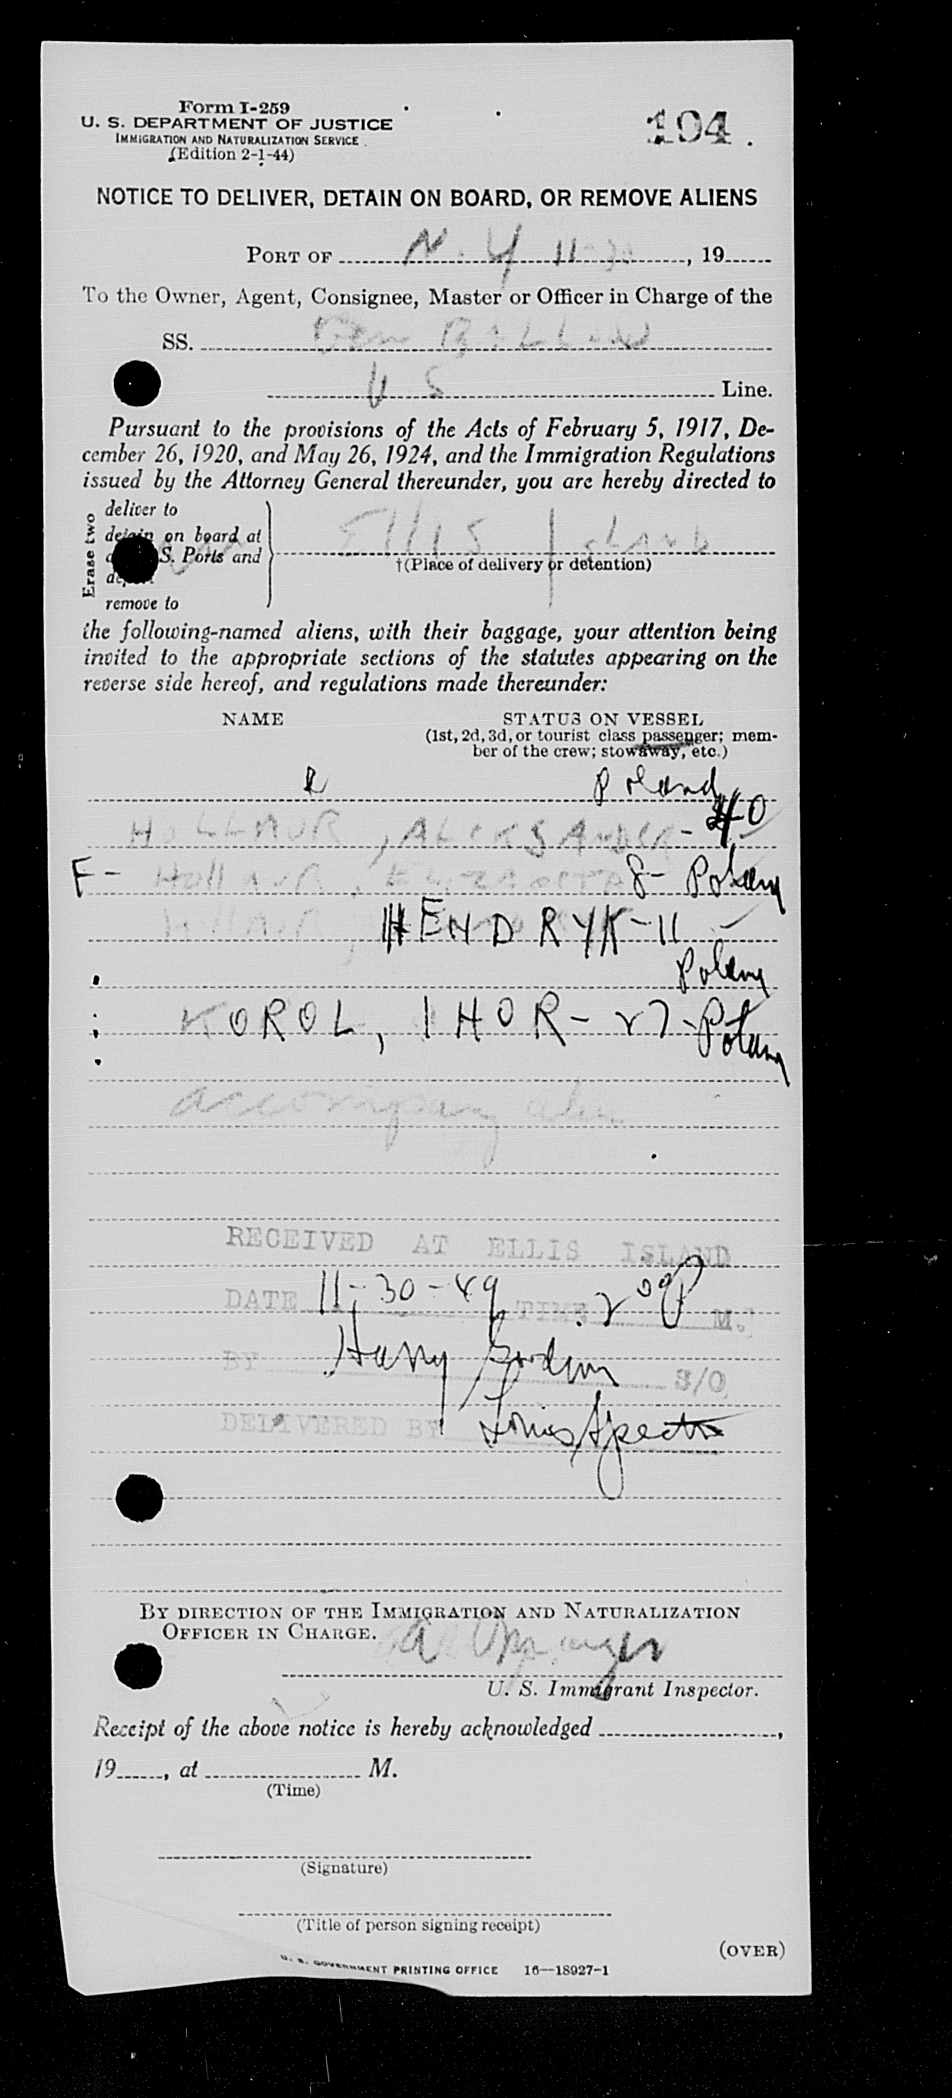 Form I-259
U. S. DEPARTMENT OF JUSTICE
IMMIGRATION AND NATURALIZATION SERVICE
(Edition 2-1-44)
194
NOTICE TO DELIVER, DETAIN ON BOARD, OR REMOVE ALIENS
PORT OF N.Y 11-30, 19
To the Owner, Agent, Consignee, Master or Officer in Charge of the
SS. Gen Ballou
U S Line.
Pursuant to the provisions of the Acts of February 5, 1917, De-
cember 26, 1920, and May 26, 1924, and the Immigration Regulations
issued by the Attorney General thereunder, you are hereby directed to
Erase two
deliver to
detain on board at
S. Ports and
remove to
Ellis Island
†(Place of delivery or detention)
the following-named aliens, with their baggage, your attention being
invited to the appropriate sections of the statutes appearing on the
reverse side hereof, and regulations made thereunder:
NAME
STATUS ON VESSEL
(1st, 2d, 3d, or tourist class passenger; mem-
ber of the crew; stowaway, etc.)
R Poland
HOLLAUR, ALEKSANDER - 40
F- HOLLAUR, ELIZABETA 8- Poland
HOLLAUR, HENDRYK-11
Poland
KOROL, IHOR-27-Poland
accompany alien
RECEIVED AT ELLIS ISLAND
DATE 11-30-49 TIME 2 00 P M.
BY Harry Gordon S/O
DELIVERED BY Louis Spector
BY DIRECTION OF THE IMMIGRATION AND NATURALIZATION
OFFICER IN CHARGE.
U. S. Immigrant Inspector.
Receipt of the above notice is hereby acknowledged ,
19 , at M.
(Time)
(Signature)
(Title of person signing receipt)
(OVER)
U. S. GOVERNMENT PRINTING OFFICE 16—18927-1